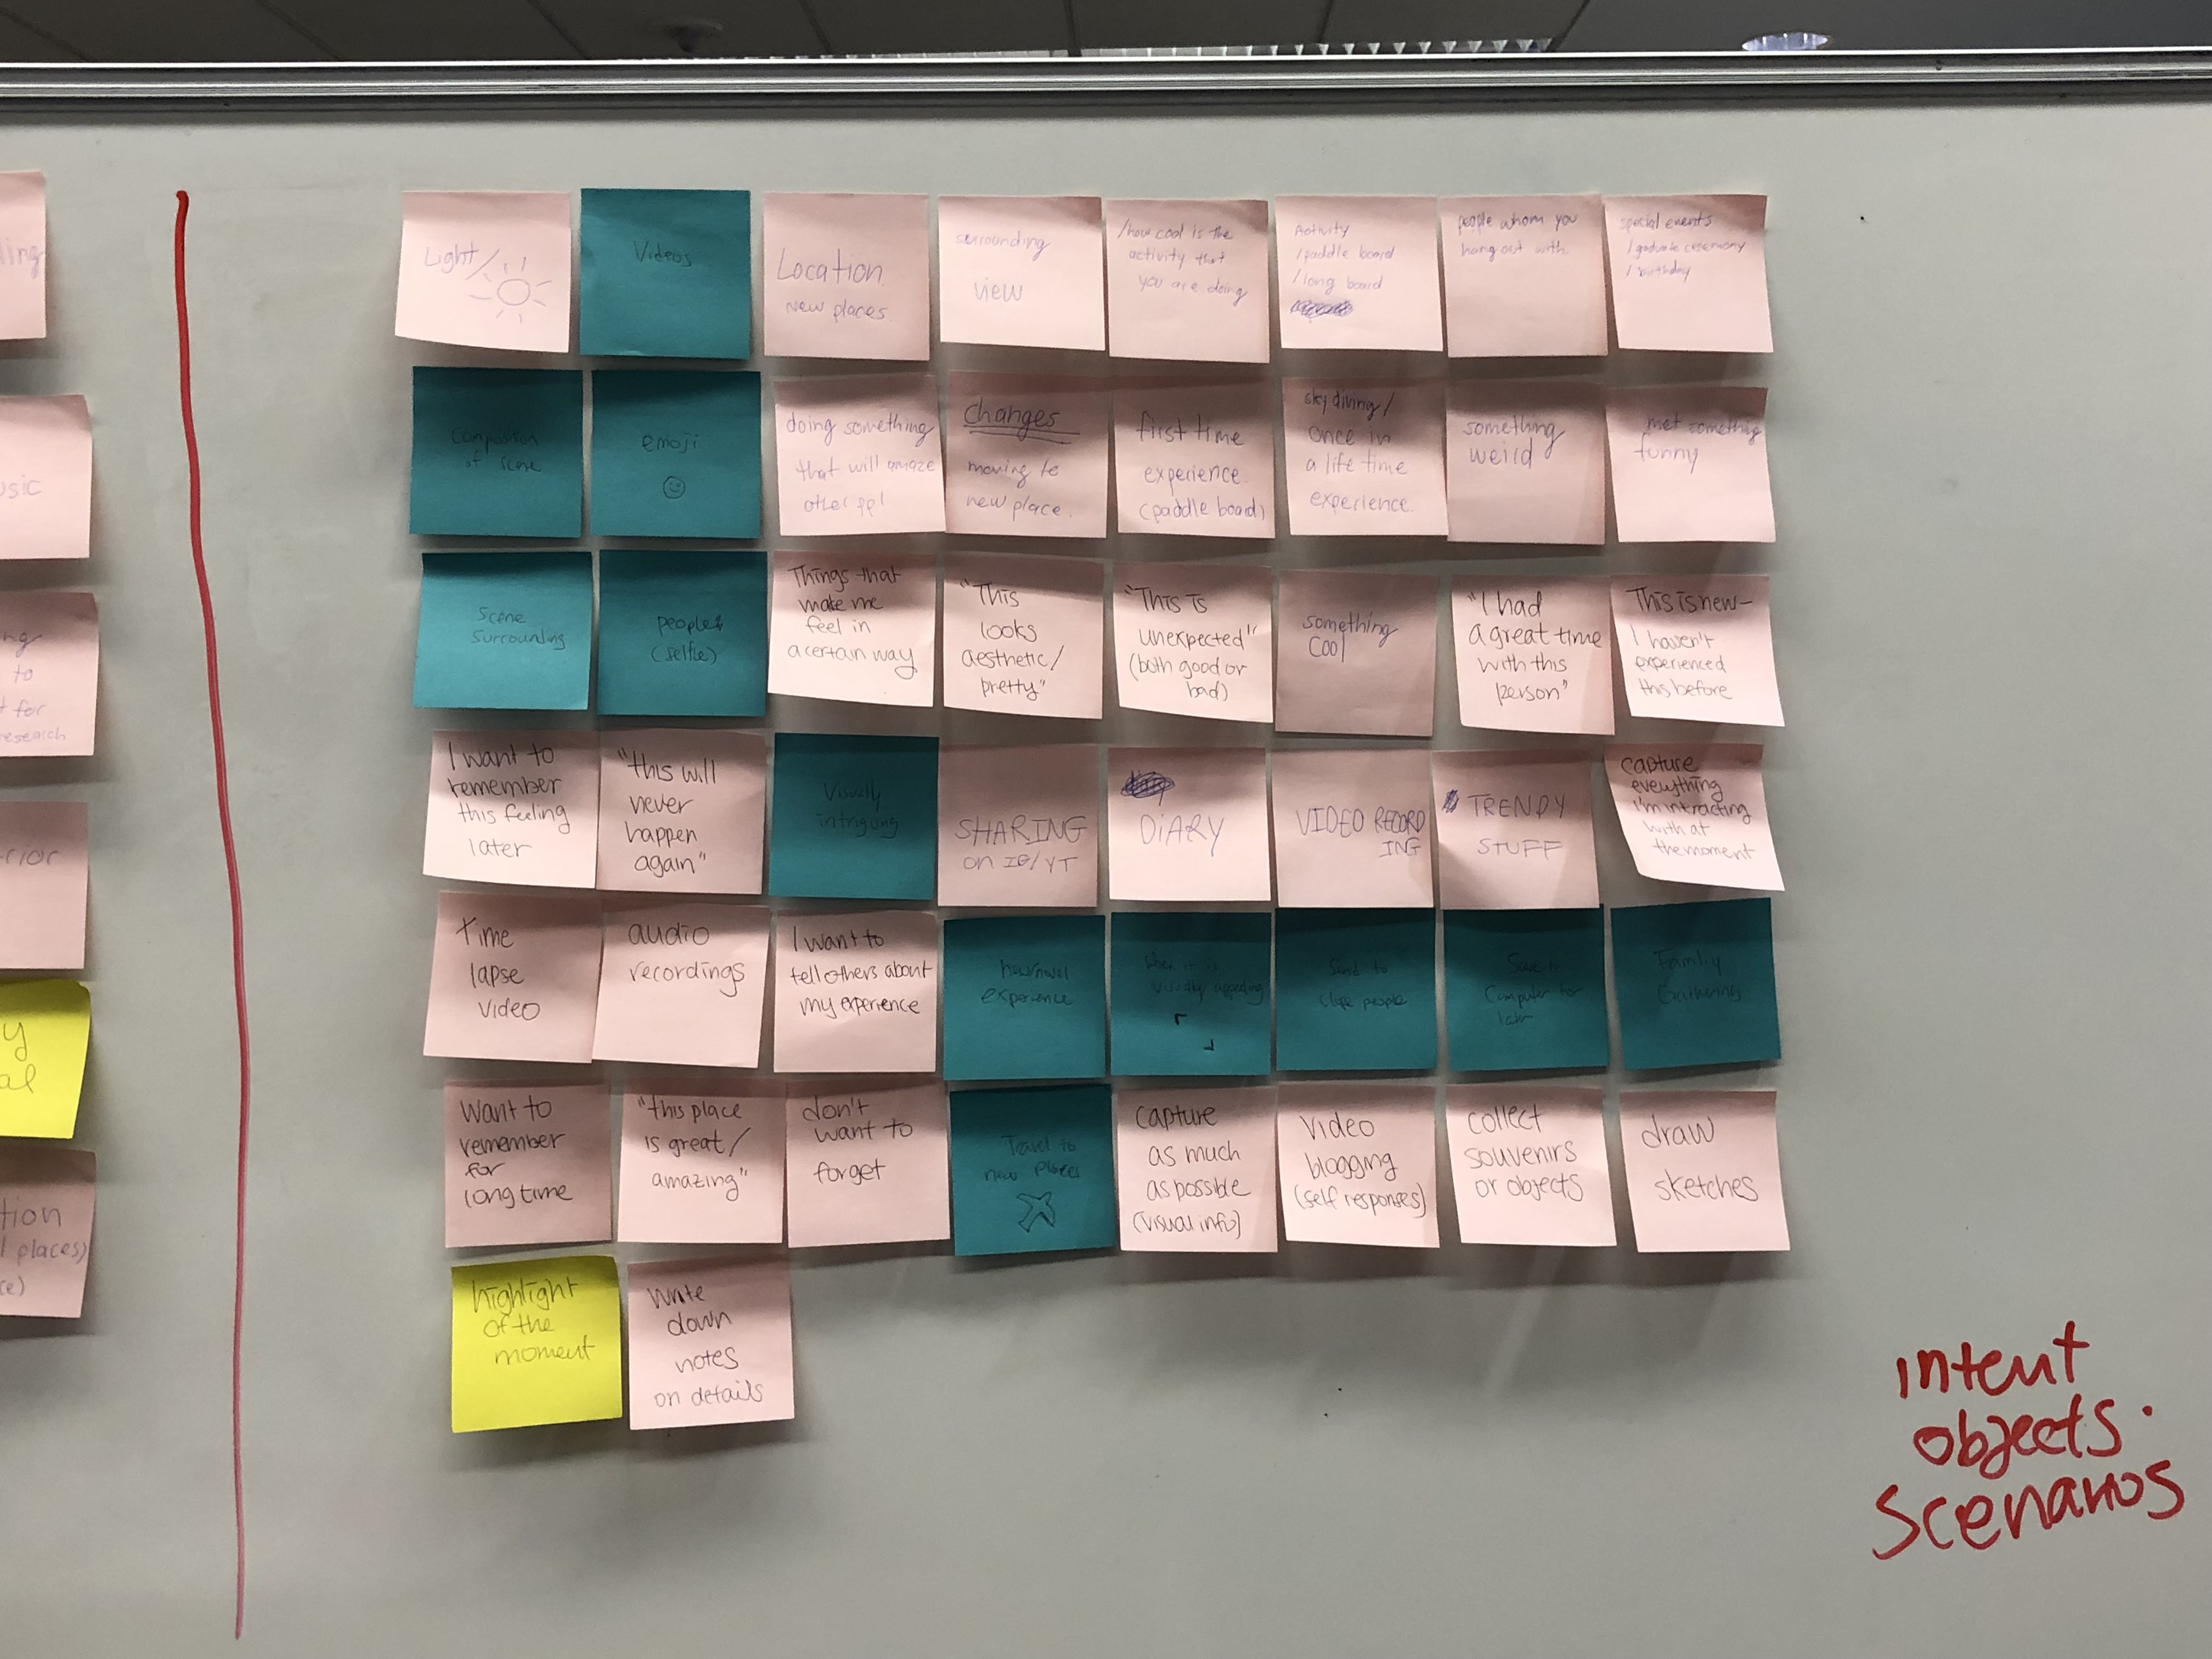 ling
usic
ng
to
t for
research
rior
y
al
tion
l places)
ce)
Light/
Videos
Location
New places.
surrounding
view
/how cool is the
activity that
you are doing
Activity
/paddle board
/long board
people whom you
hang out with
special events
/graduate ceremony
/birthday
Composition
of scene
emoji
doing something
that will amaze
other ppl
Changes
moving to
new place.
first time
experience.
(paddle board)
sky diving/
once in
a life time
experience.
something
weird
met something
funny
Scene
Surrounding
people
(selfie)
Things that
make me
feel in
a certain way
"This
looks
aesthetic/
pretty"
"This is
unexpected"
(both good or
bad)
something
Cool
"I had
a great time
with this
person"
This is new-
I haven't
experienced
this before
I want to
remember
this feeling
later
"this will
never
happen
again"
Visually
intriguing
SHARING
on IG/YT
DiARY
VIDEO RECORD
ING
TRENDY
STUFF
capture
everything
I'm intracting
with at
the moment
time
lapse
video
audio
recordings
I want to
tell others about
my experience
new/novel
experience
When it is
visually appealing
Send to
close people
Save to
Computer for
later
Family
Gathering
Want to
remember
for
long time
"this place
is great/
amazing"
don't
want to
forget
Travel to
new places
capture
as much
as possible
(visual info)
Video
blogging
(self responses)
collect
souvenirs
or objects
draw
sketches
highlight
of the
moment
Write
down
notes
on details
intent
objects.
Scenarios